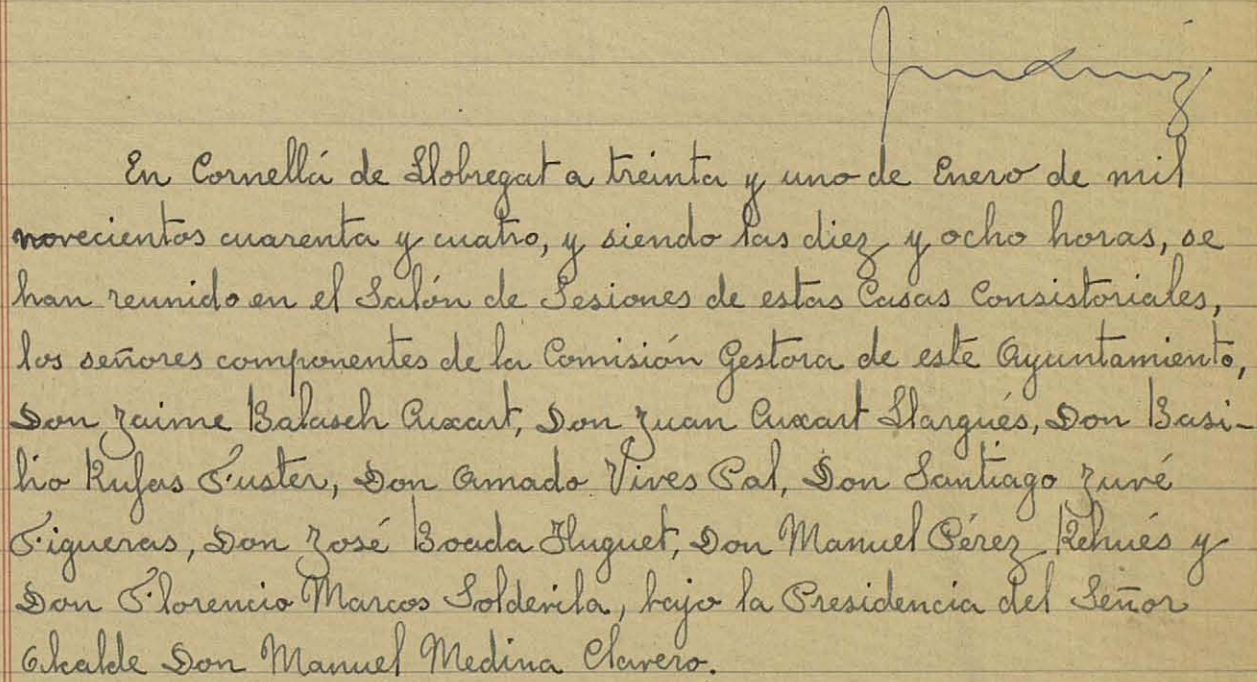 En Cornellá de Llobregat a treinta y uno de Enero de mil
novecientos cuarenta y cuatro, y siendo las diez y ocho horas, se
han reunido en el Salón de Sesiones de estas Casas Consistoriales,
los señores componentes de la Comisión Gestora de este Ayuntamiento,
Don Jaime Balasch Auxart, Don Juan Auxart Llargués, Don Basi-
lio Rufas Fuster, Don Amado Vives Pal, Don Santiago Juvé
Figueras, Don José Boada Huguet, Don Manuel Pérez Rehués y
Don Florencio Marcos Soldevila, bajo la Presidencia del Señor
Alcalde Don Manuel Medina Clavero.